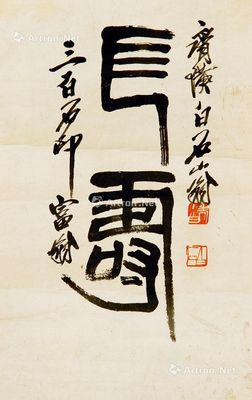 齊璜白石山翁
長壽
三百石印富翁
Artron.Net
Artron.Net
Artron.Net